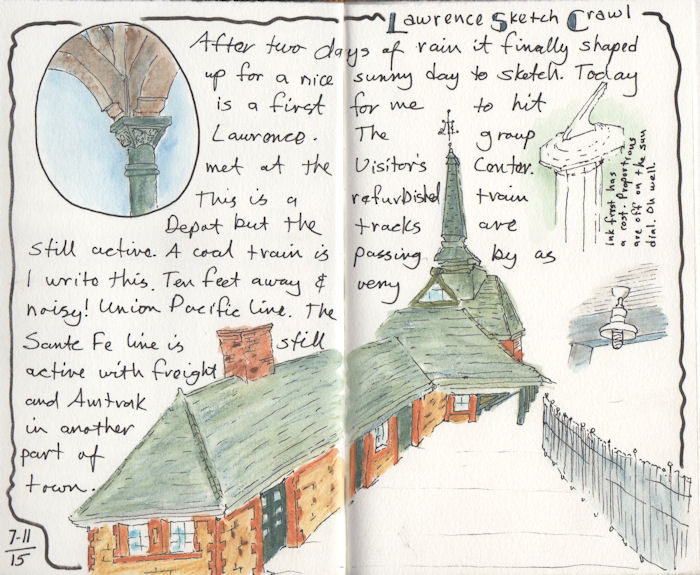 Lawrence Sketch Crawl
After two days of rain it finally shaped
up for a nice sunny day to sketch. Today
is a first for me to hit
Lawrence. The group
met at the Visitor's Center.
This is a refurbished train
Depot but the tracks are
still active. A coal train is passing by as
I write this. Ten feet away & very
noisy! Union Pacific line. The
Sante Fe line is still
active with freight
and Amtrak
in another
part of
town.
Ink first has
a cost. Proportions
are off on the sun
dial. Oh well.
7-11
15